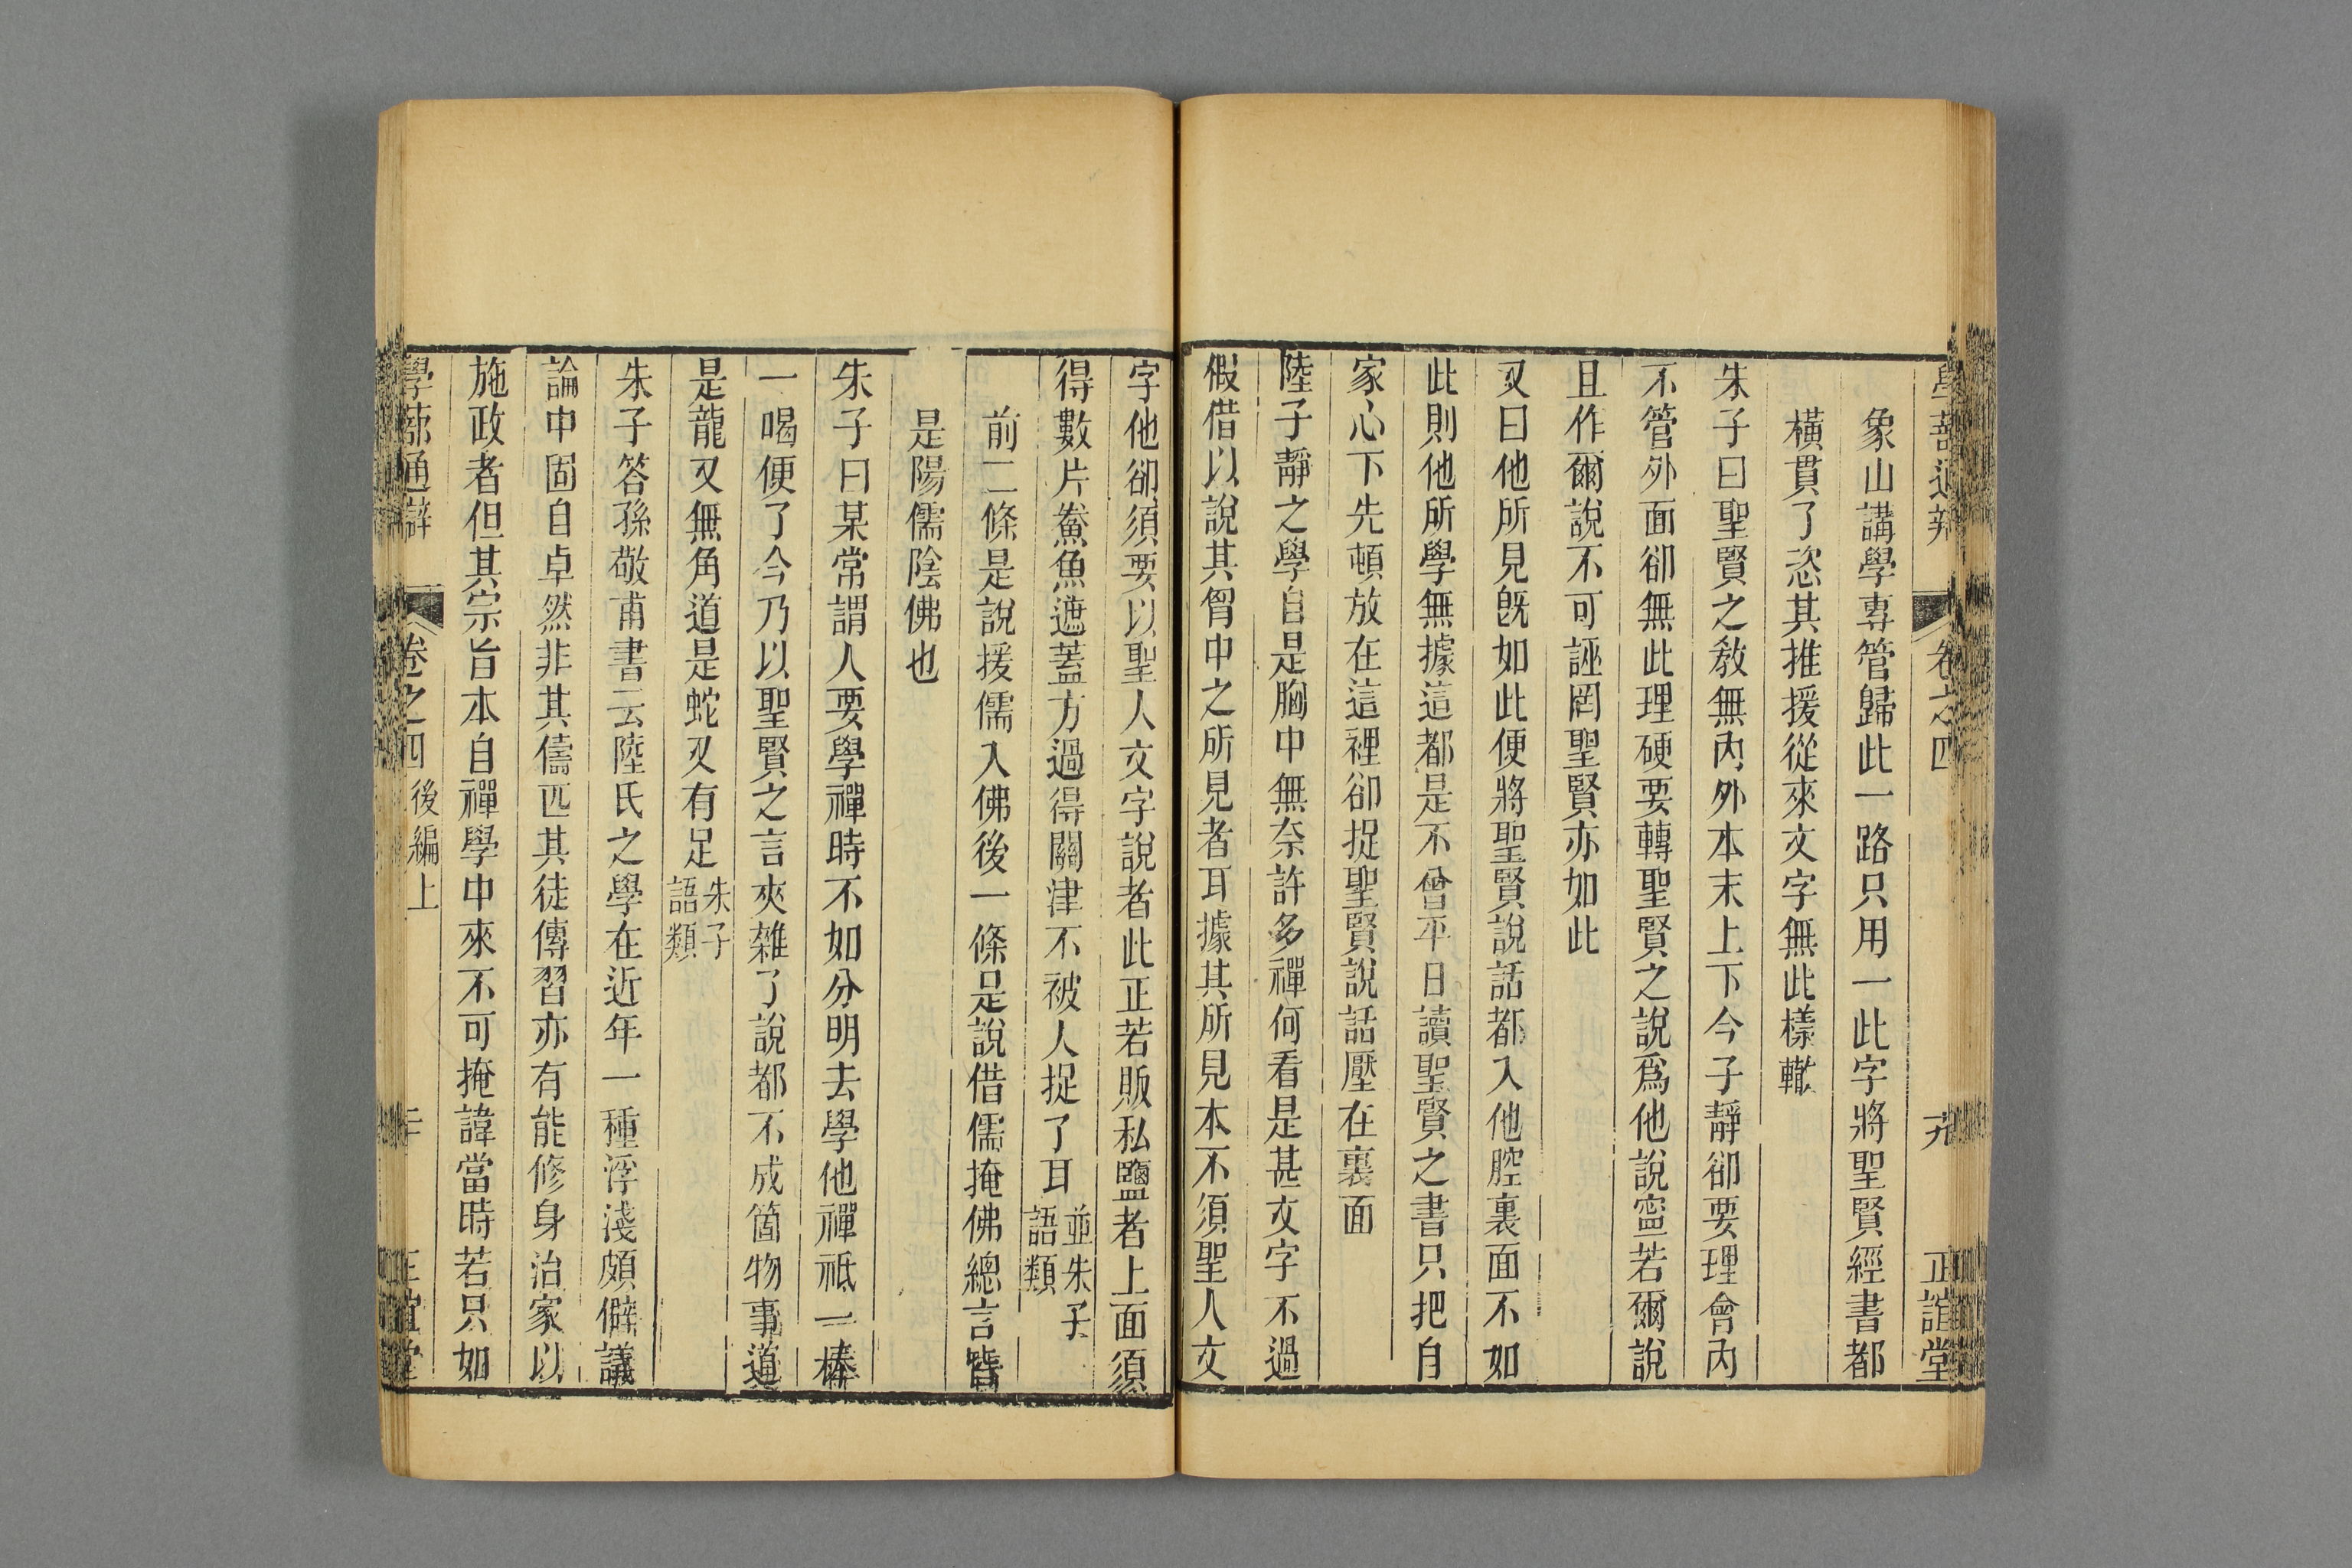 學蔀通辨 卷之四 九 正誼堂
象山講學專管歸此一路只用一此字將聖賢經書都
橫貫了恣其推援從來文字無此樣轍
朱子曰聖賢之敎無內外本末上下今子靜卻要理會內
不管外面卻無此理硬要轉聖賢之說爲他說寧若爾說
且作爾說不可誣罔聖賢亦如此
又曰他所見旣如此便將聖賢說話都入他腔裏面不如
此則他所學無據這都是不曾平日讀聖賢之書只把自
家心下先頓放在這裡卻捉聖賢說話壓在裏面
陸子靜之學自是胸中無奈許多禪何看是甚文字不過
假借以說其胷中之所見者耳據其所見本不須聖人文
字他卻須要以聖人文字說者此正若販私鹽者上面須
得數片鮝魚遮蓋方過得關津不被人捉了耳 並朱子語類
前二條是說援儒入佛後一條是說借儒掩佛總言皆
是陽儒陰佛也
朱子曰某常謂人要學禪時不如分明去學他禪祗一棒
一喝便了今乃以聖賢之言夾雜了說都不成箇物事道
是龍又無角道是蛇又有足 朱子語類
朱子答孫敬甫書云陸氏之學在近年一種浮淺頗僻議
論中固自卓然非其儔匹其徒傳習亦有能修身治家以
施政者但其宗旨本自禪學中來不可掩諱當時若只如
學蔀通辨 卷之四 後編上 二十 正誼堂